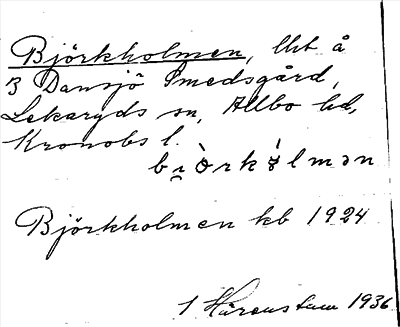 Björkholmen, lht å
3 Dansjö Smedsgård,
Lekaryds sn, Allbo hd,
Kronobs l.
Björkholmen kb 1924
1936